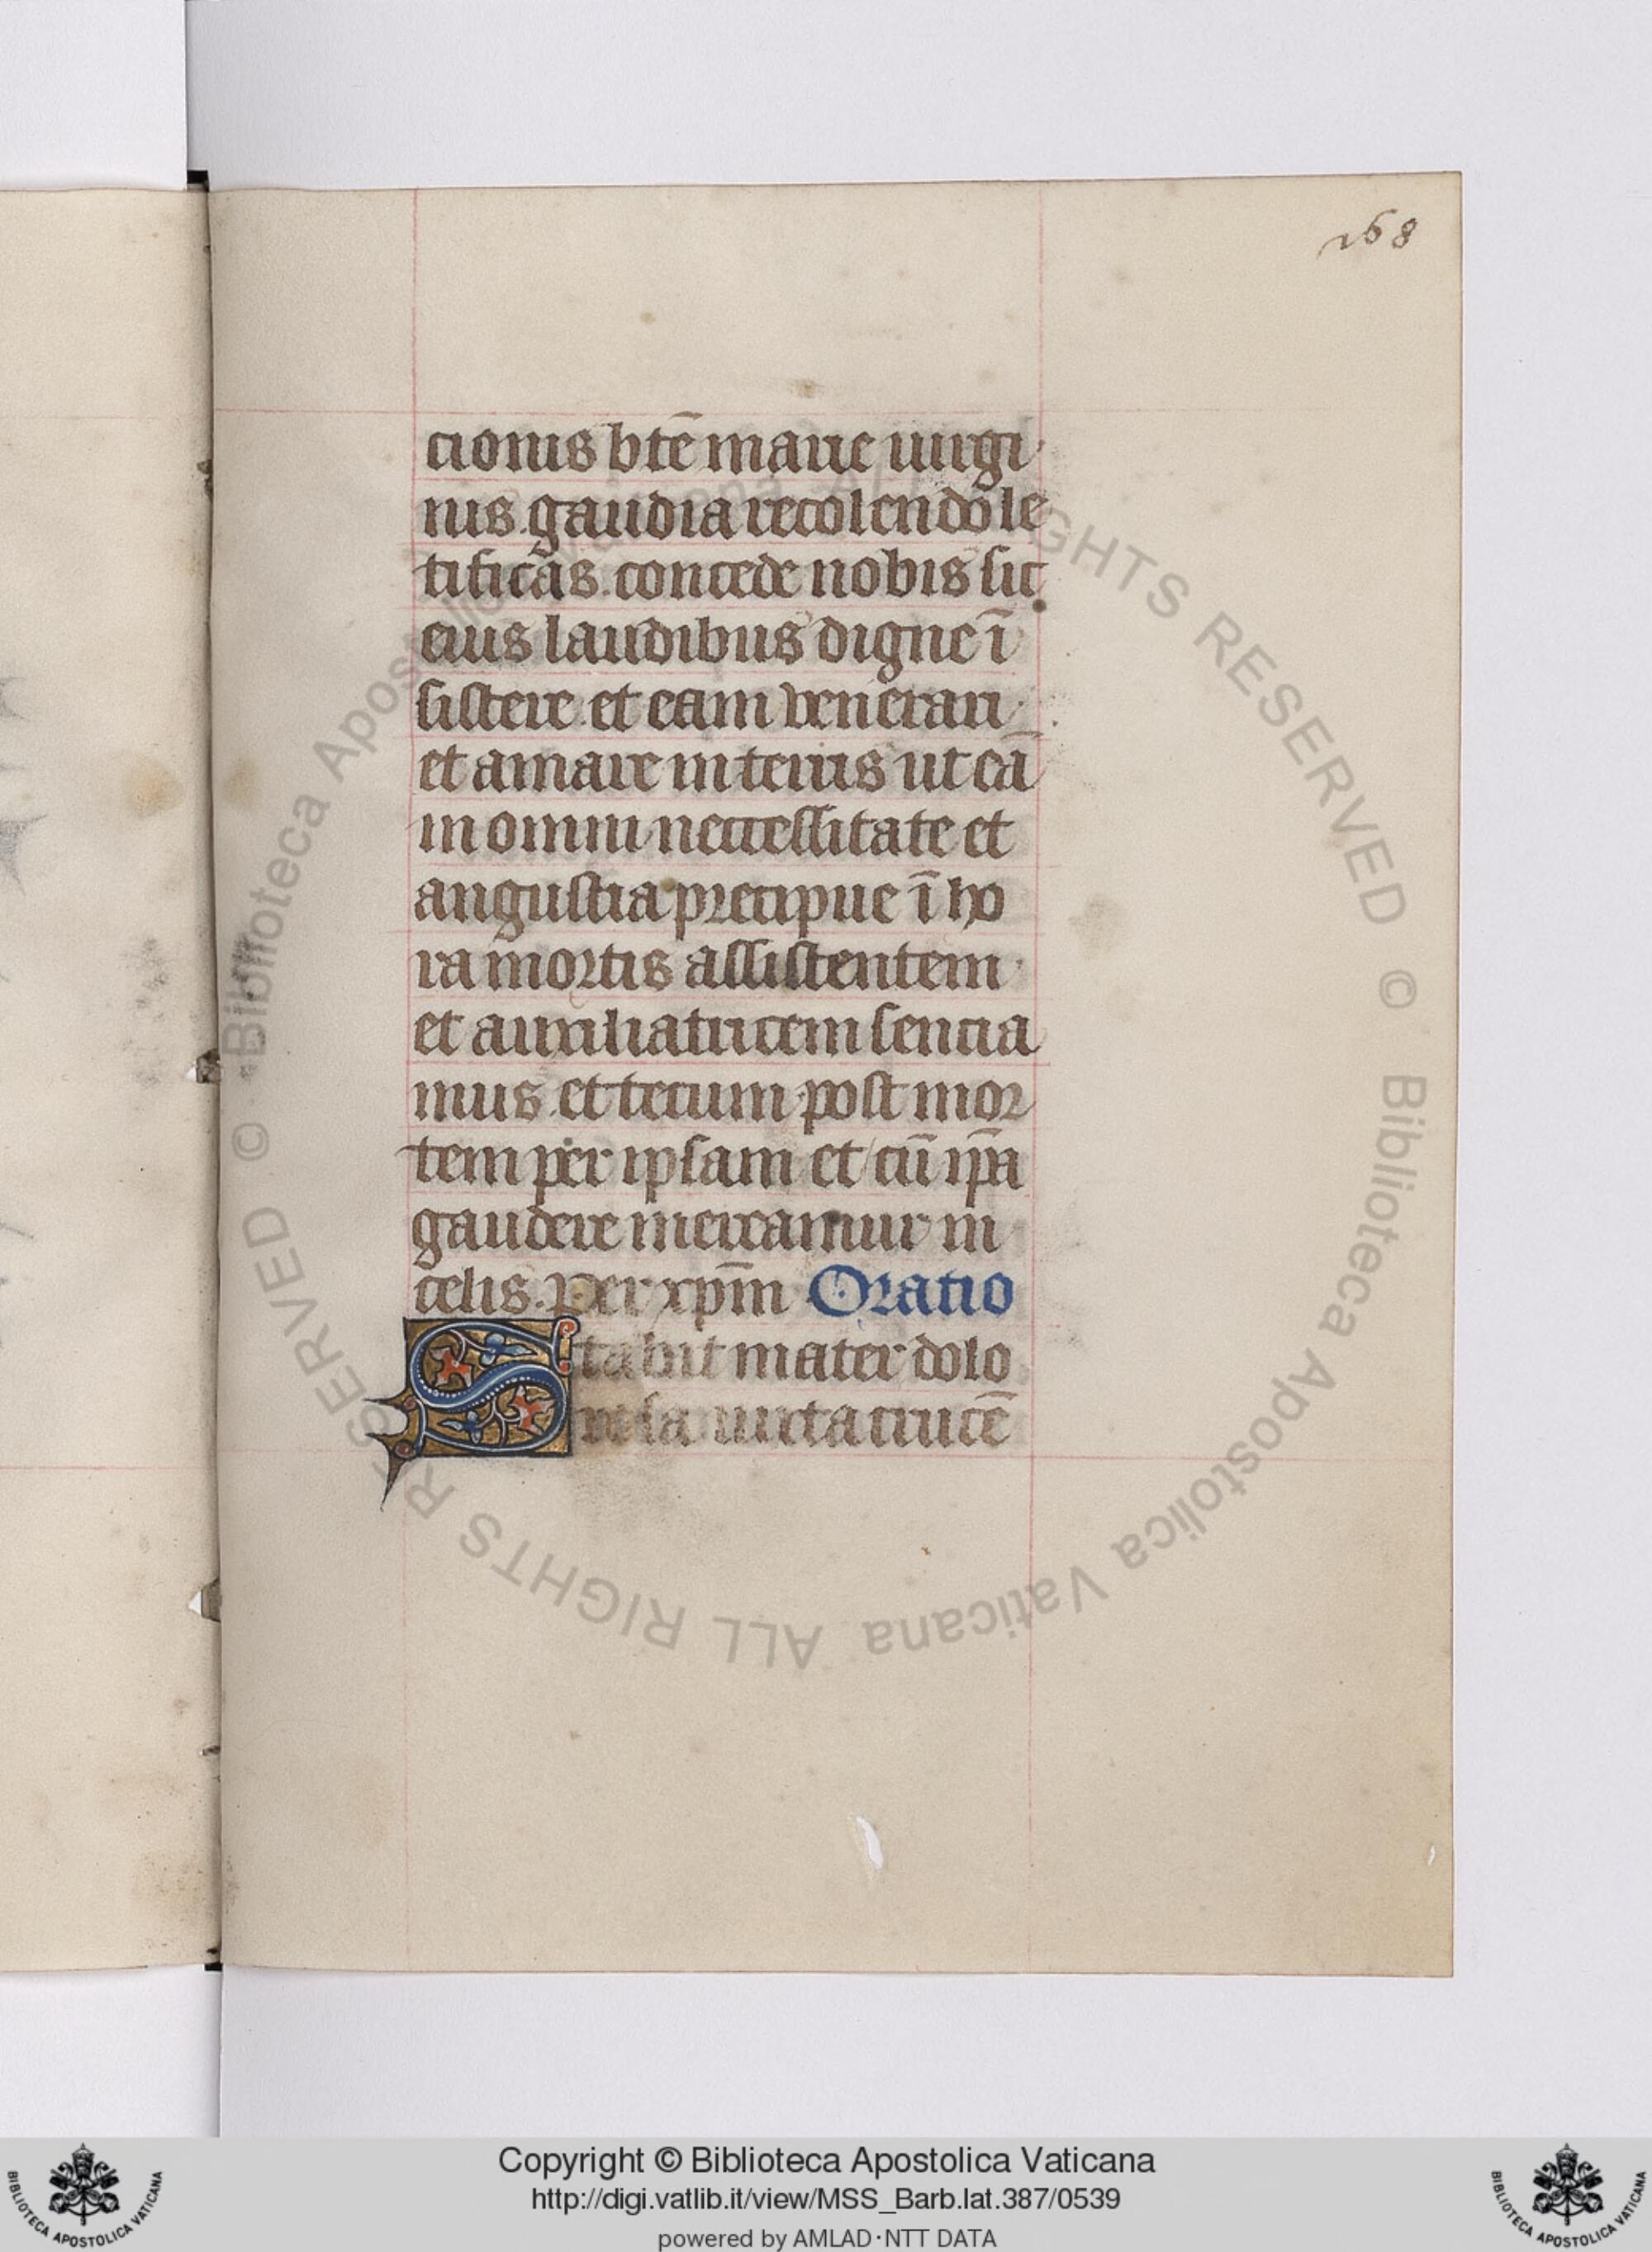 268
cionis btē marie uirgi
nis. gaudia recolendo le
tificas. concede nobis sic
eius laudibus digne ī
sistere. et eam venerari
et amare interius ut eā
in omni neccessitate et
angustia precipue ī ho
ra mortis assistentem
et auxiliatricem sencia
mus. et tecum post mor
tem per ipsam et cū ip̄a
gaudere mereamur in
celis. Per xp̄m Oratio
Stabat mater dolo
rosa iuxta crucē
© Biblioteca Apostolica Vaticana ALL RIGHTS RESERVED © Biblioteca Apostolica Vaticana ALL RIGHTS RESERVED
Copyright © Biblioteca Apostolica Vaticana
http://digi.vatlib.it/view/MSS_Barb.lat.387/0539
powered by AMLAD·NTT DATA
BIBLIOTECA APOSTOLICA VATICANA
BIBLIOTECA APOSTOLICA VATICANA